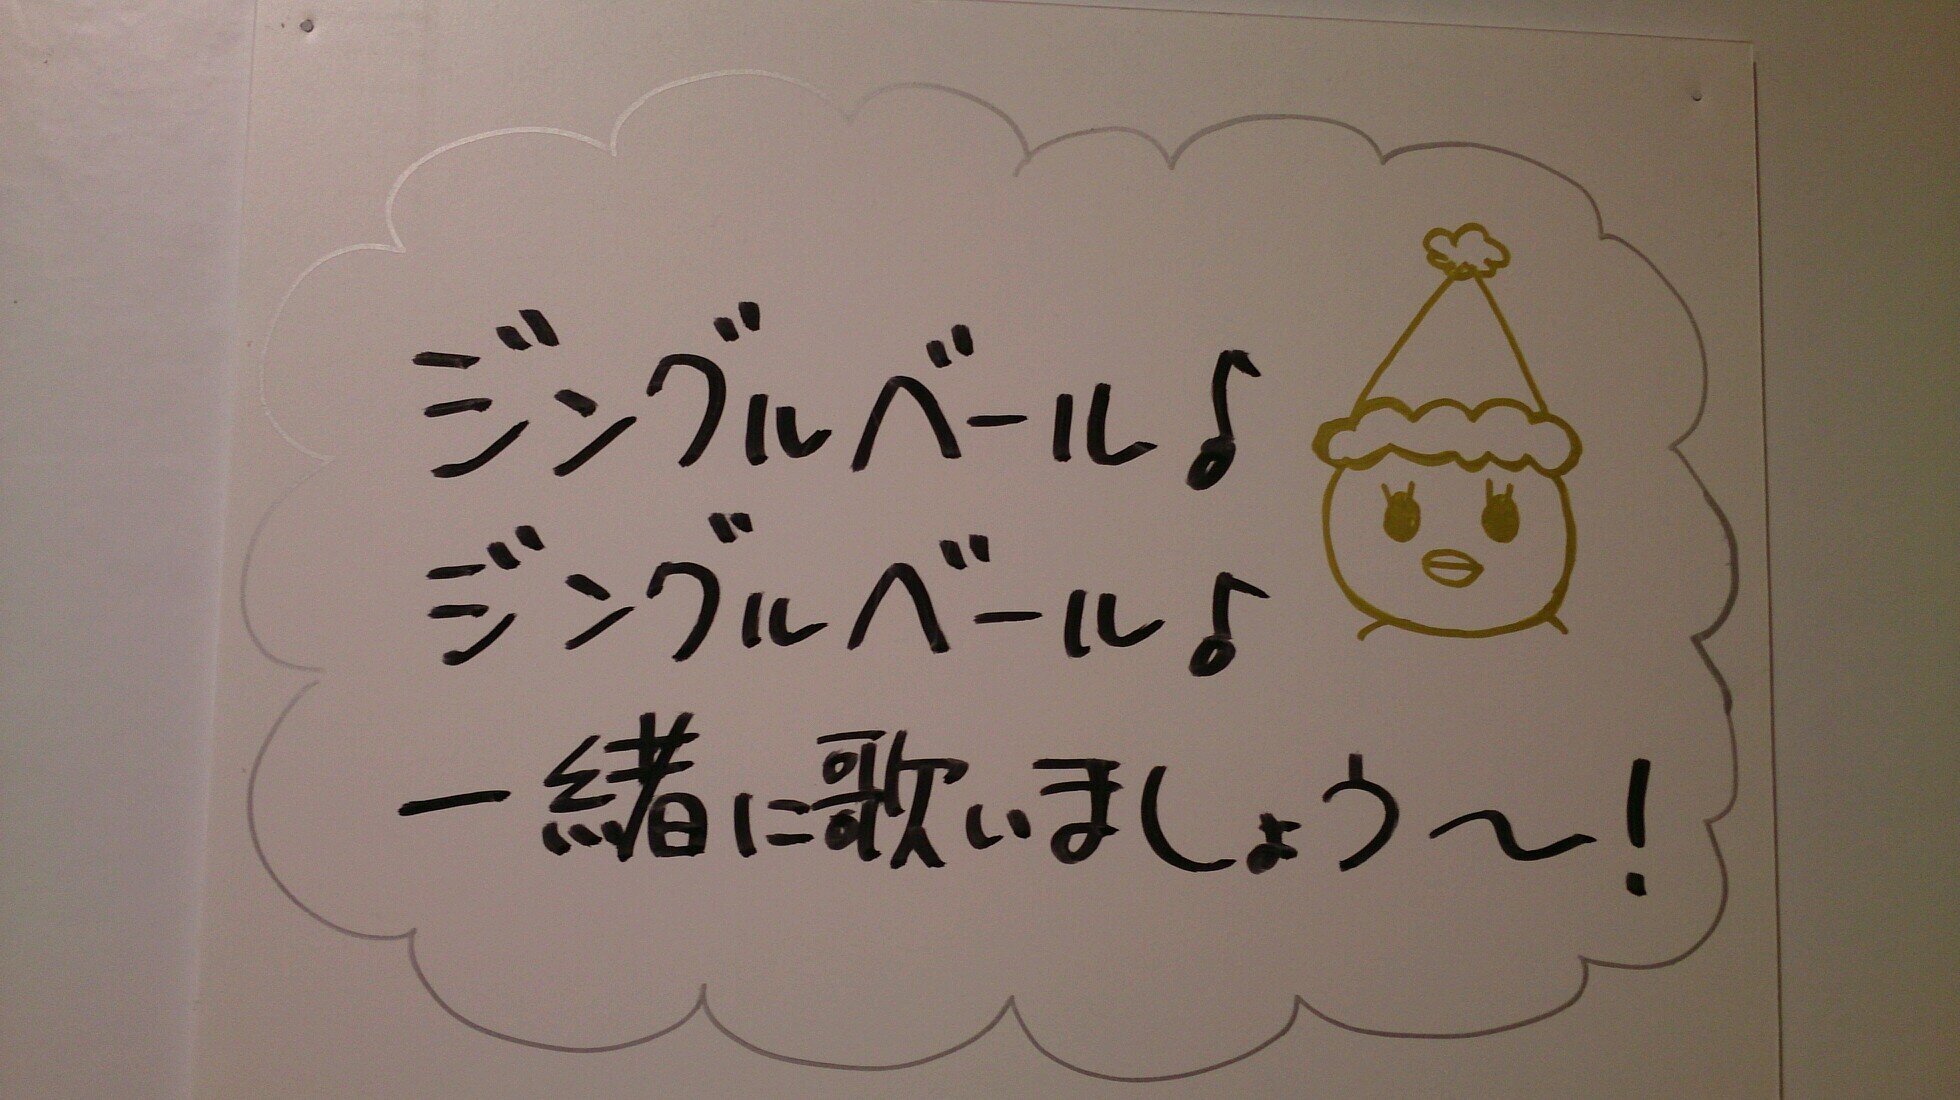 ジングルベール♪
ジングルベール♪
一緒に歌いましょう〜！